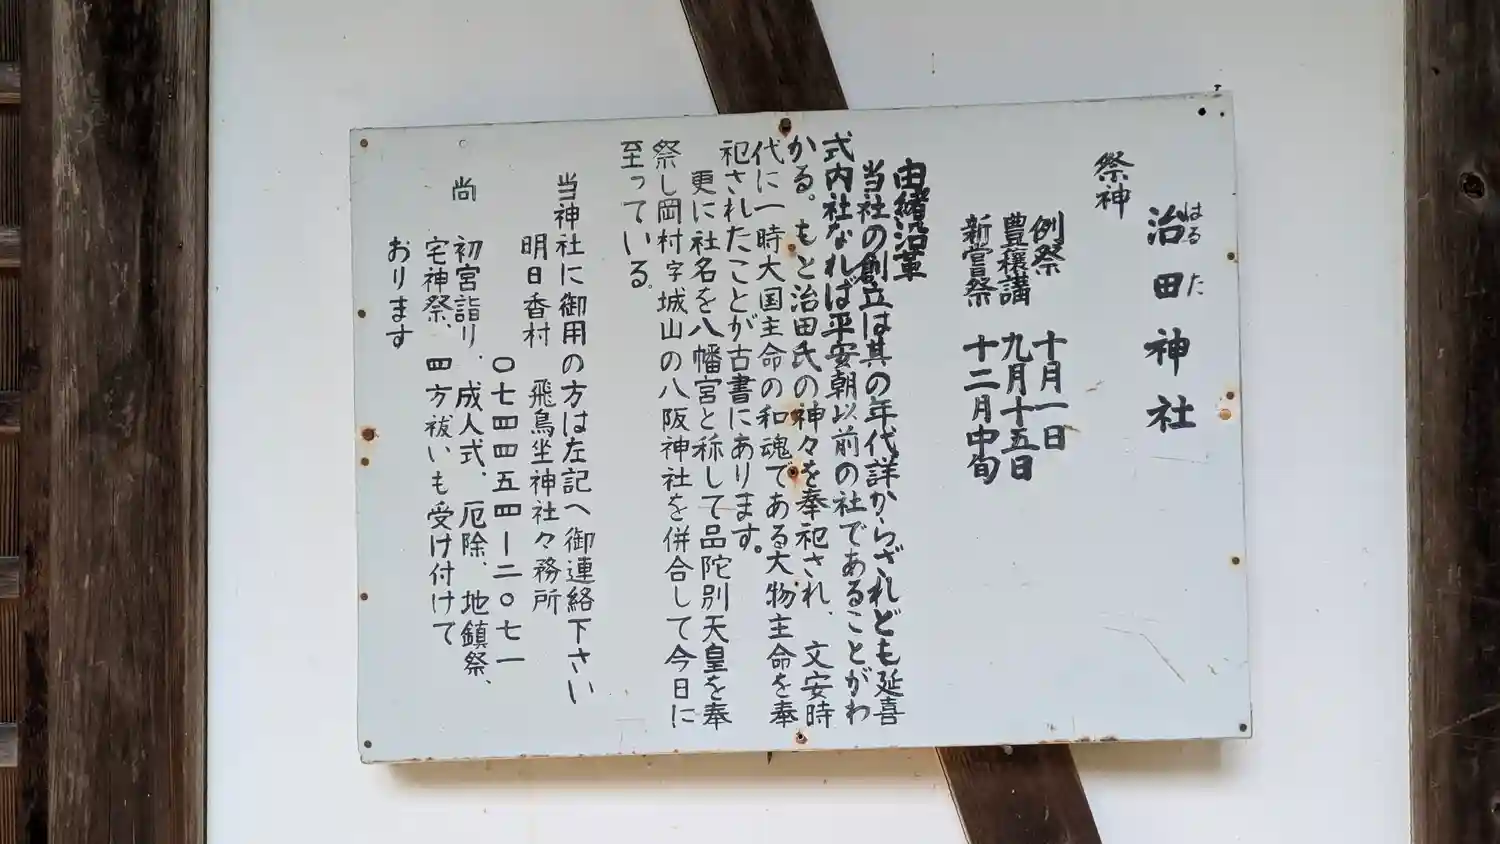 治田神社
はるた
祭神
例祭 十月一日
豊穣講 九月十五日
新嘗祭 十二月中旬
由緒沿革
当社の創立は其の年代詳からざれども延喜
式内社なれば平安朝以前の社であることがわ
かる。もと治田氏の神々を奉祀され、文安時
代に一時大国主命の和魂である大物主命を奉
祀されたことが古書にあります。
更に社名を八幡宮と称して品陀別天皇を奉
祭し岡村字城山の八阪神社を併合して今日に
至っている。
当神社に御用の方は左記へ御連絡下さい
明日香村 飛鳥坐神社々務所
〇七四四五四ー二〇七一
尚 初宮詣り、成人式、厄除、地鎮祭、
宅神祭、四方祓いも受け付けて
おります